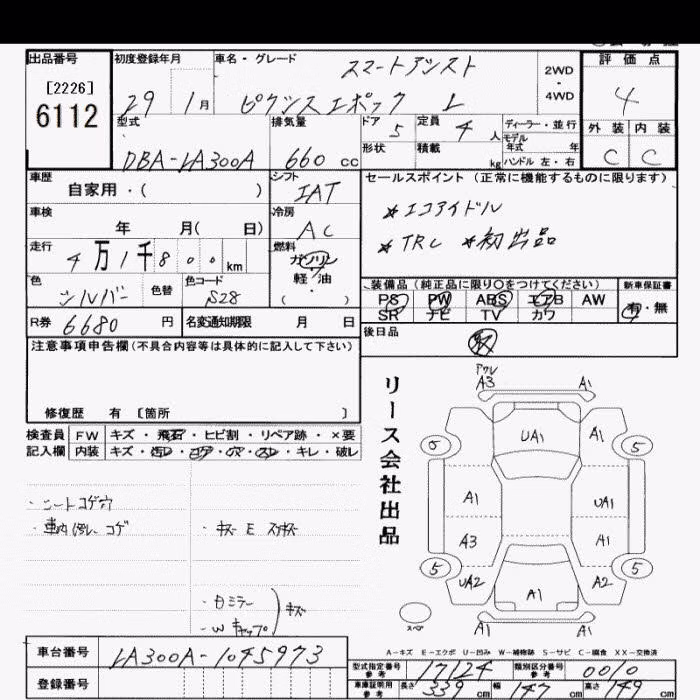 出品番号 初度登録年月 車名・グレード 評価点
[2226] スマートアシスト 2WD
6112 29 1月 ピクシスエポック L 4WD 4
型式 排気量 ドア 5 定員 4人 ディーラー・並行 外装 内装
DBA-LA300A 660 cc 形状 積載 kg モデル年式 年 ハンドル 左・右 C C
車歴 自家用・( ) シフト IAT セールスポイント (正常に機能するものに限ります)
車検 年 月( 日) 冷房 AC *エコアイドル
走行 4万1千800km 燃料 ガソリン 軽・油 ・ ( ) *TRC *初出品
色 シルバー 色替 色コード S28 装備品 (純正品に限り○をつけてください) 新車保証書
PS PW ABS エアB AW 有・無
R券 6680 円 名変通知期限 月 日 SR ナビ TV カワ
注意事項申告欄(不具合内容等は具体的に記入して下さい) 後日品
取
修復歴 有 〔箇所 〕
リース会社出品
検査員記入欄 FW キズ・飛石・ヒビ割・リペア跡・×要
内装 キズ・汚レ・コゲ・穴・スレ・キレ・破レ
A3 A1
UA1 A1
5 5
A1 UA1
A3 A1
5 5
UA2 A2
A1
スペア A1
・シートコゲ穴
・車内汚レ、コゲ ・キズ E スリキズ
・Bミラー
・Wキャップ キズ
A-キズ E-エクボ U-凹み W-補修跡 S-サビ C-腐食 XX-交換済
車台番号 LA300A-1045973
登録番号
型式指定番号 参考 17124 類別区分番号 参考 0010
車庫証明用 参考 長さ 339 cm 幅 147 cm 高さ 149 cm